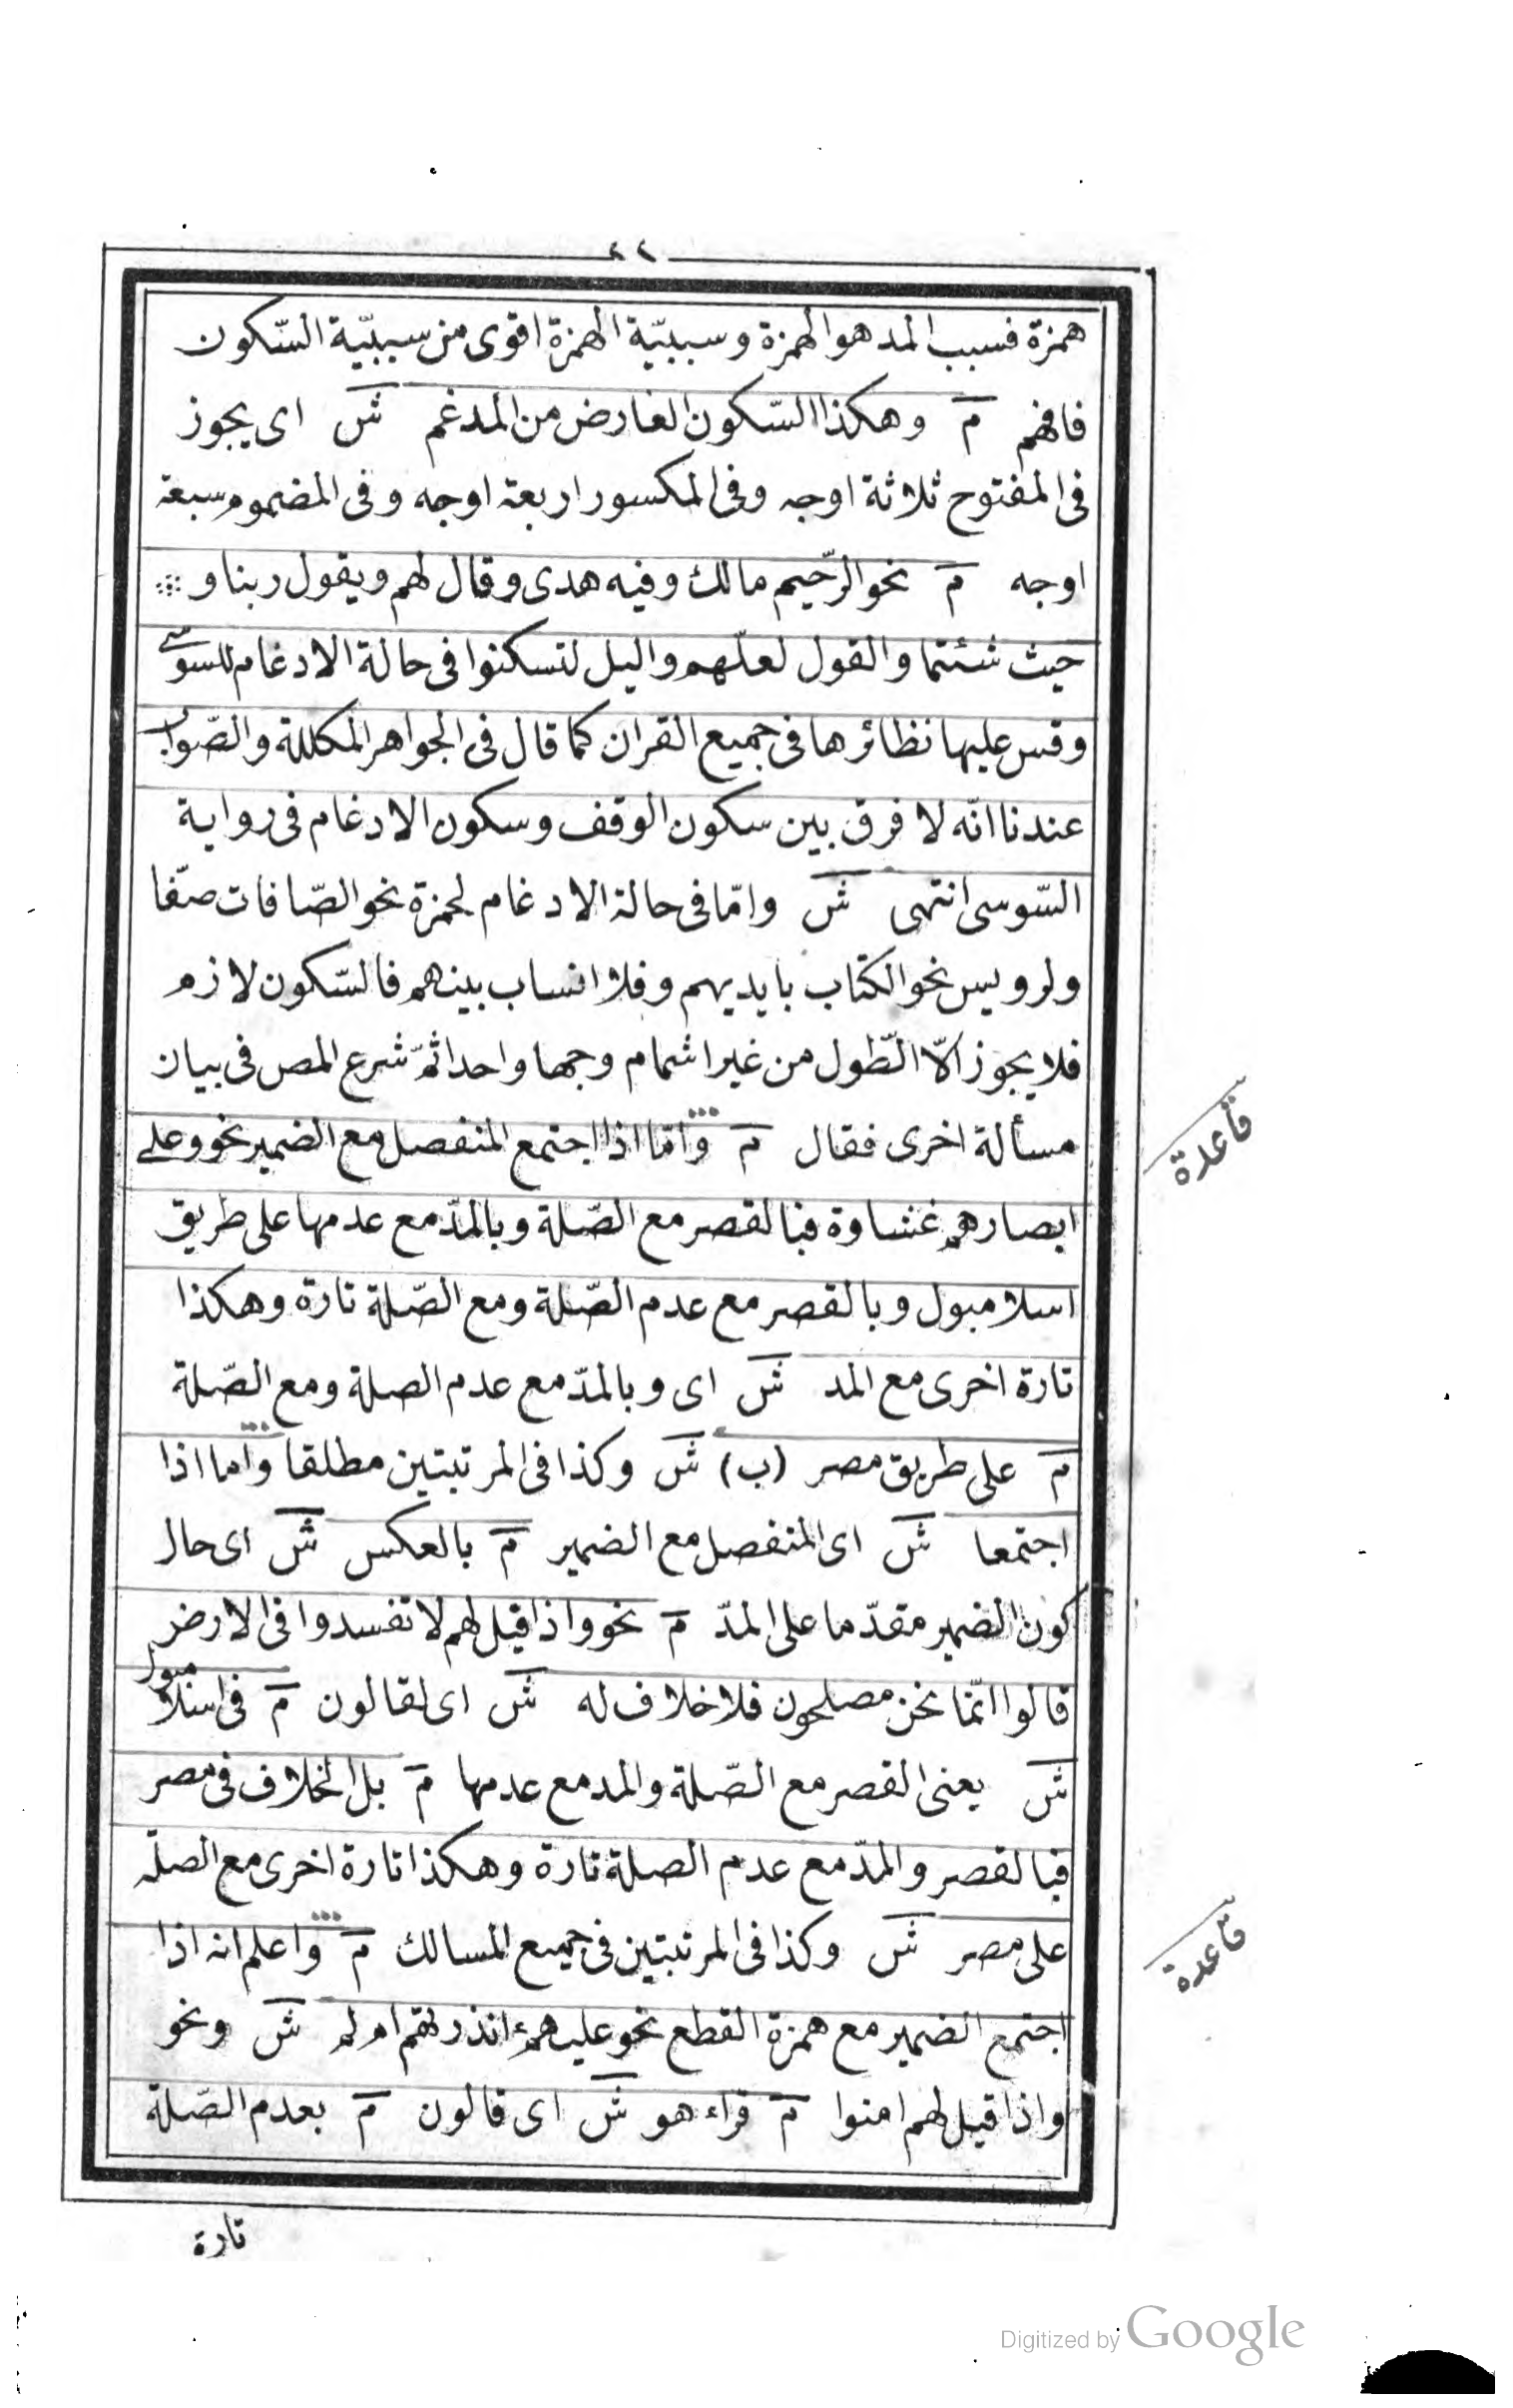 ٤٢
همزة فسبب المد هو الهمزة وسببيّة الهمزة اقوى من سببيّة السّكون
فافهم م وهكذا السّكون العارض من المدغم ش اى يجوز
فى المفتوح ثلاثة اوجه وفى المكسور اربعة اوجه وفى المضموم سبعة
اوجه م نحو الرّحيم مالك وفيه هدى وقال لهم ويقول ربنا و
حيث شئتما والقول لعلّهم واليل لتسكنوا فى حالة الادغام للسوسى
وقس عليها نظائرها فى جميع القران كما قال فى الجواهر المكللة والصّواب
عندنا انّه لا فرق بين سكون الوقف وسكون الادغام فى رواية
السّوسى انتهى ش وامّا فى حالة الادغام لحمزة نحو الصّافات صفّا
ولرويس نحو الكتاب بايديهم وفلا انساب بينهم فالسّكون لازم
فلا يجوز الّا الطّول من غير اشمام وجها واحدا ثمّ شرع المص فى بيان
مسألة اخرى فقال م وامّا اذا اجتمع المنفصل مع الضمير نحو وعلى
ابصارهم غشاوة فبالقصر مع الصّلة وبالمدّ مع عدمها على طريق
اسلامبول وبالقصر مع عدم الصّلة ومع الصّلة تارة وهكذا
تارة اخرى مع المد ش اى وبالمدّ مع عدم الصلة ومع الصّلة
م على طريق مصر (ب) ش وكذا فى المرتبتين مطلقا واما اذا
اجتمعا ش اى المنفصل مع الضمير م بالعكس ش اى حال
كون الضمير مقدّما على المدّ م نحو واذا قيل لهم لا تفسدوا فى الارض
قالوا انّما نحن مصلحون فلا خلاف له ش اى لقالون م فى اسلامبول
ش يعنى القصر مع الصّلة والمد مع عدمها م بل الخلاف فى مصر
فبالقصر والمدّ مع عدم الصلة تارة وهكذا تارة اخرى مع الصلة
على مصر ش وكذا فى المرتبتين فى جميع المسالك م واعلم انه اذا
اجتمع الضمير مع همزة القطع نحو عليهمءانذرتهم ام لم ش ونحو
واذا قيل لهم امنوا م قراء هو ش اى قالون م بعدم الصّلة
تارة
قاعدة
قاعدة
Digitized by Google